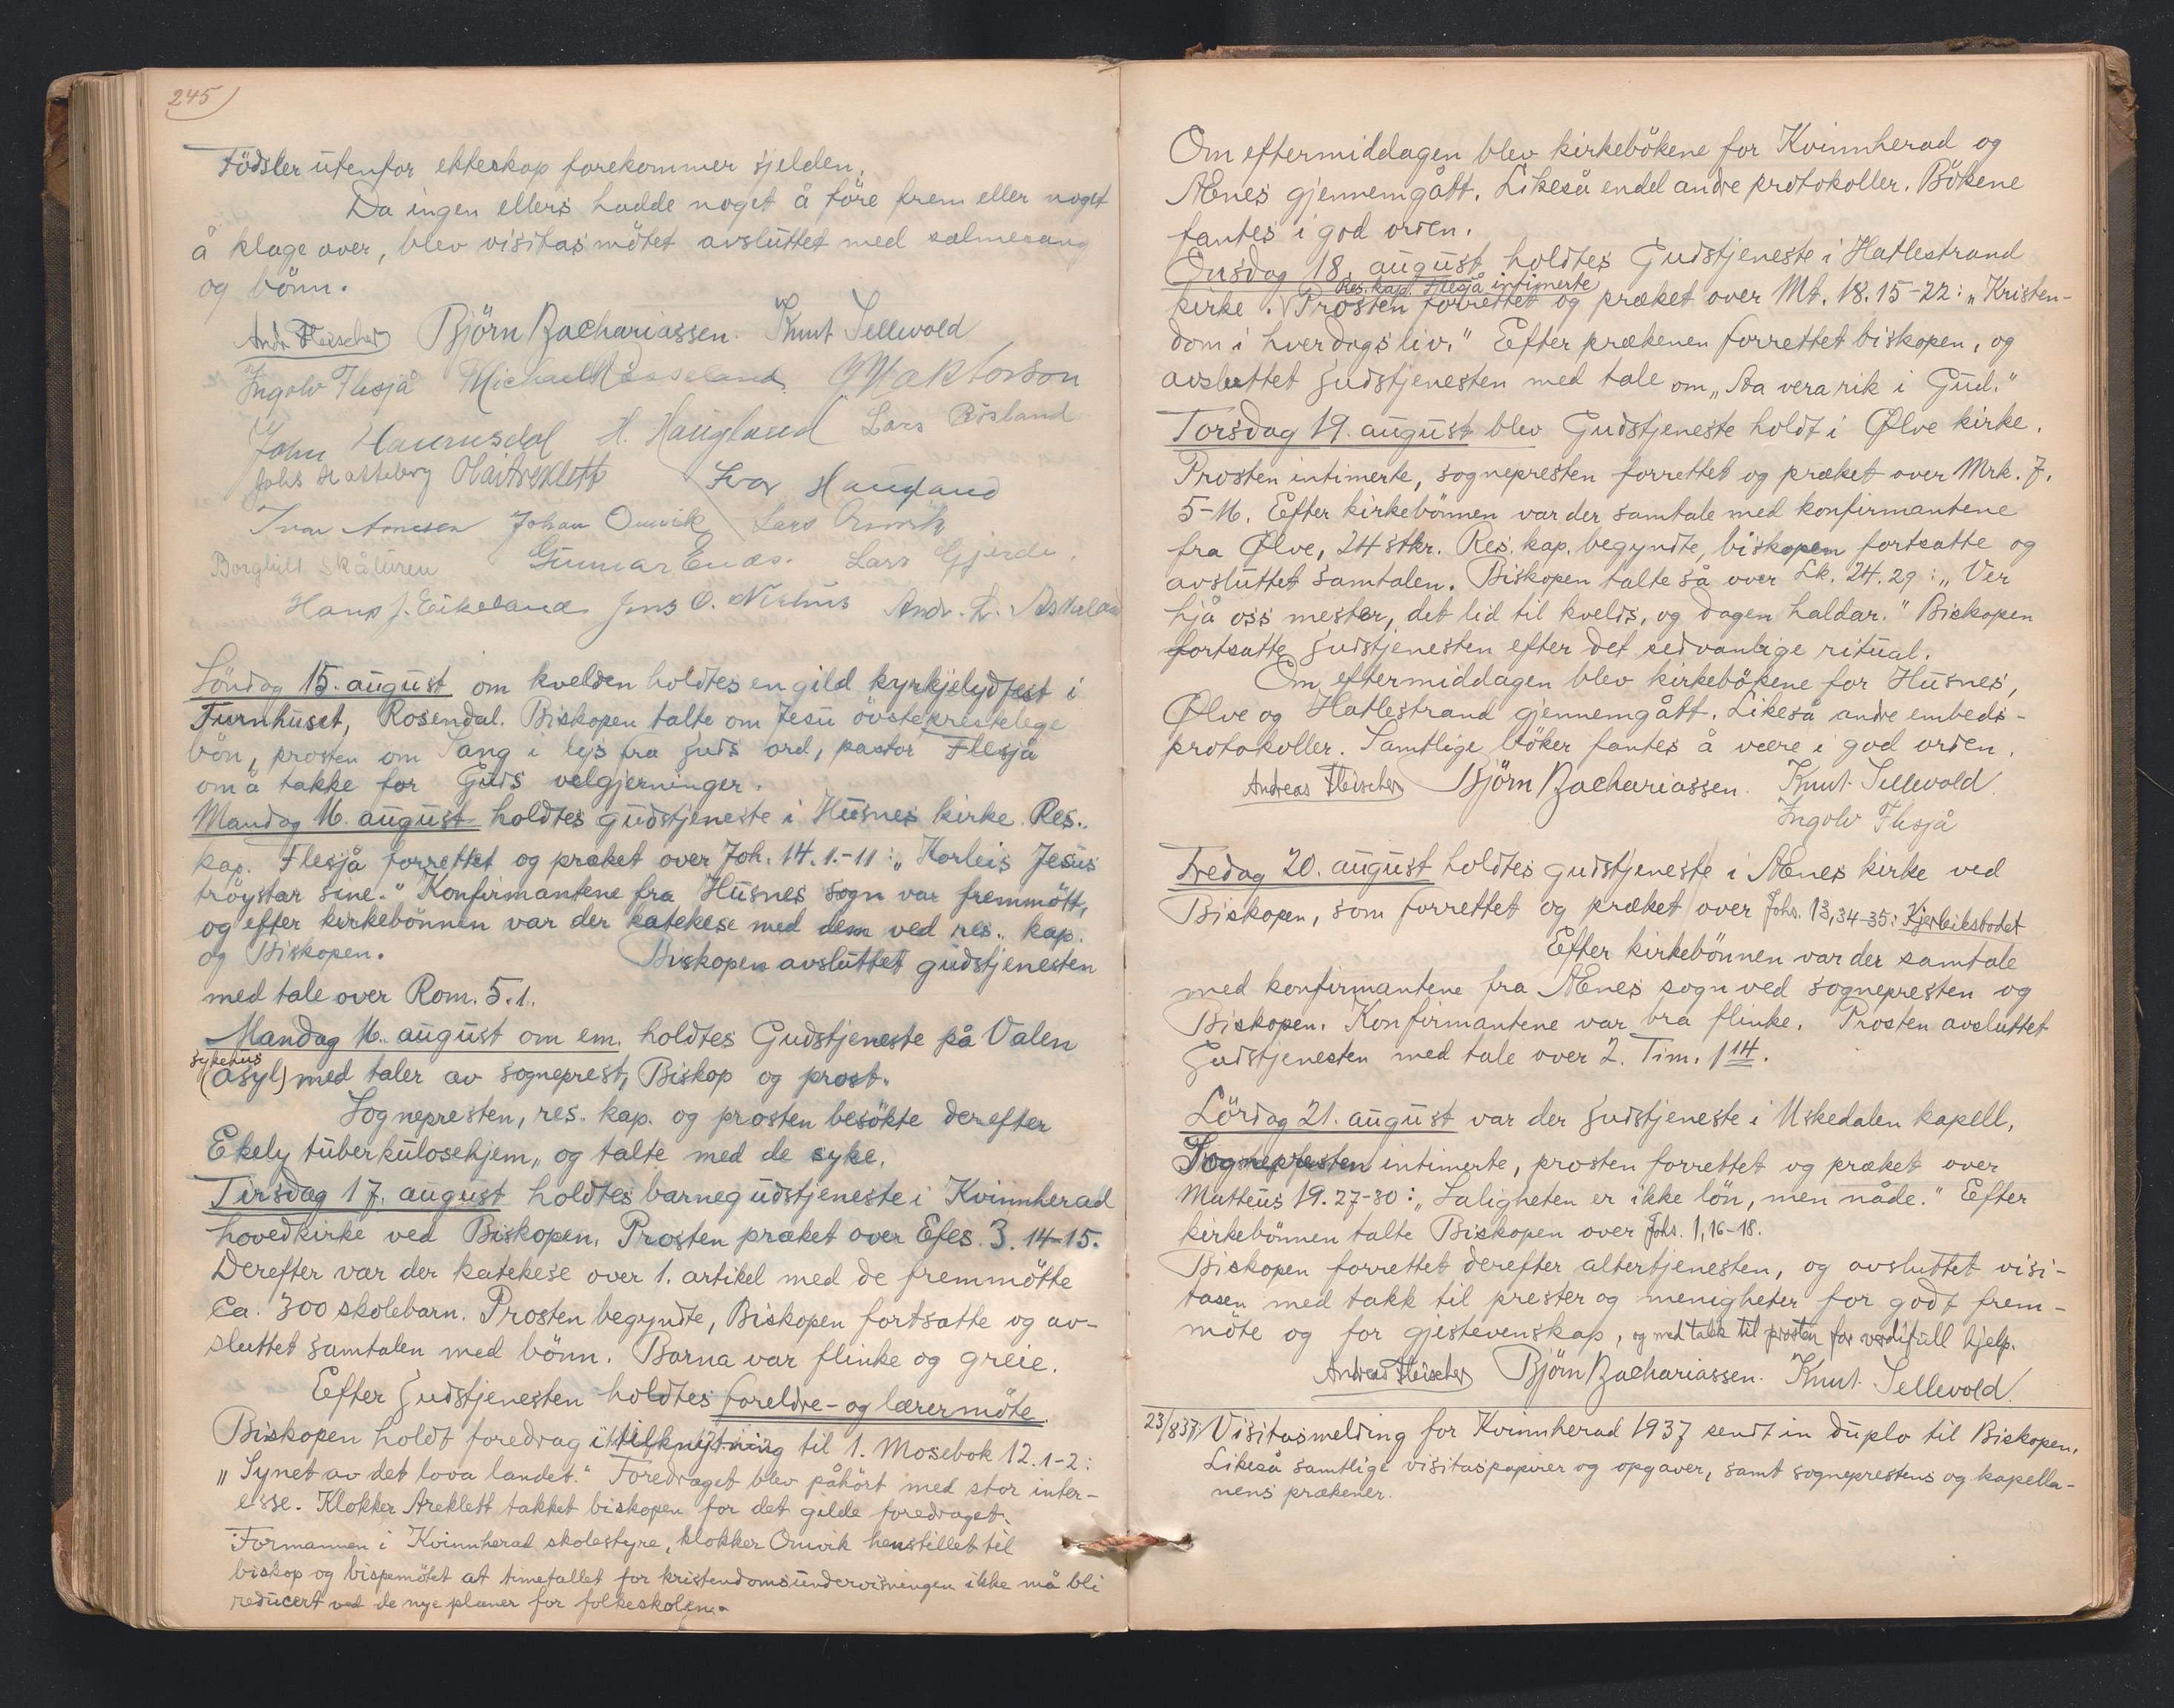 245
Födsler utenfor ekteskap forekommer sjelden.
Da ingen ellers hadde noget å före frem eller noget
å klage over, blev visitasmötet avsluttet med salmesang
og bönn.
Andr. Fleischer Björn Zachariassen. Knut Sellevold
Ingolv Flesjå Michael
John H. Haugland Lars
Johs Hatteberg Haugland
Ivar Arnesen Johan Omvik Lars Omvik
Borghild Skåluren Gunnar Enæs. Lars Gjerde.
Hans J. Eikeland Jens O. Nerhus Andr. L. Askeland
Söndag 15. august om kvelden holdtes en gild kyrkjelydfest i
Turnhuset, Rosendal. Biskopen talte om Jesu övsteprestelege
bön, prosten om Sang i lys fra Guds ord, pastor Flesjå
om å takke for Guds velgjerninger.
Mandag 16. august holdtes gudstjeneste i Husnes kirke. Res.
kap. Flesjå forrettet og præket over Joh. 14.1.-11: „Korleis Jesus
tröystar sine." Konfirmantene fra Husnes sogn var fremmött,
og efter kirkebönnen var der katekese med dem ved res. kap.
og Biskopen. Biskopen avsluttet gudstjenesten
med tale over Rom. 5.1.
Mandag 16. august om em. holdtes Gudstjeneste på Valen
sykehus
(asyl) med taler av sogneprest, Biskop og prost.
Sognepresten, res. kap. og prosten besökte derefter
Ekely tuberkulosehjem, og talte med de syke.
Tirsdag 17. august holdtes barnegudstjeneste i Kvinnherad
hovedkirke ved Biskopen. Prosten præket over Efes. 3. 14-15.
Derefter var der katekese over 1. artikel med de fremmötte
ca. 300 skolebarn. Prosten begyndte, Biskopen fortsatte og av-
sluttet samtalen med bönn. Barna var flinke og greie.
Efter Gudstjenesten holdtes foreldre- og lærermöte.
Biskopen holdt foredrag i tilknytning til 1. Mosebok 12. 1-2:
„Synet av det lova landet." Foredraget blev påhört med stor inter-
esse. Klokker Areklett takket biskopen for det gilde foredraget.
Formannen i Kvinnherad skolestyre, klokker Omvik henstillet til
biskop og bispemötet at timetallet for kristendomsundervisningen ikke må bli
reducert ved de nye planer for folkeskolen.
Om eftermiddagen blev kirkebökene for Kvinnherad og
Ænes gjennemgått. Likeså endel andre protokoller. Bökene
fantes i god orden.
Onsdag 18. august holdtes Gudstjeneste i Hatlestrand
Res. kap. Flesjå intimerte
kirke. Prosten forrettet og præket over Mt. 18. 15-22: „Kristen-
dom i hverdagsliv." Efter prækenen forrettet biskopen, og
avsluttet Gudstjenesten med tale om „Aa vera rik i Gud."
Torsdag 19. august blev Gudstjeneste holdt i Ølve kirke.
Prosten intimerte, sognepresten forrettet og præket over Mrk. 7.
5-16. Efter kirkebönnen var der samtale med konfirmantene
fra Ølve, 24 stkr. Res. kap. begyndte, biskopen fortsatte og
avsluttet samtalen. Biskopen talte så over Lk. 24.29: „Ver
hjå oss mester, det lid til kvelds, og dagen haldar." Biskopen
fortsatte Gudstjenesten efter det sedvanlige ritual.
Om eftermiddagen blev kirkebökene for Husnes,
Ølve og Hatlestrand gjennemgått. Likeså andre embeds-
protokoller. Samtlige böker fantes å være i god orden.
Andreas Fleischer Björn Zachariassen. Knut Sellevold.
Ingolv Flesjå
Fredag 20. august holdtes gudstjeneste i Ænes kirke ved
Biskopen, som forrettet og præket over Johs. 13, 34-35: Kjerleiksbodet
Efter kirkebönnen var der samtale
med konfirmantene fra Ænes sogn ved sognepresten og
Biskopen. Konfirmantene var bra flinke. Prosten avsluttet
Gudstjenesten med tale over 2. Tim. 1 14.
Lördag 21. august var der Gudstjeneste i Uskedalen kapell.
Sognepresten intimerte, prosten forrettet og præket over
Matteus 19. 27-30: „Saligheten er ikke lön, men nåde." Efter
kirkebönnen talte Biskopen over Johs. 1, 16-18.
Biskopen forrettet derefter altertjenesten, og avsluttet visi-
tasen med takk til prester og menigheter for godt frem-
möte og for gjestevenskap, og med takk til prosten for verdifull hjelp.
Andreas Fleischer Björn Zachariassen. Knut Sellevold.
23/8 37. Visitasmelding for Kvinnherad 1937 sendt in duplo til Biskopen.
Likeså samtlige visitaspapirer og opgaver, samt sogneprestens og kapella-
nens prækener.